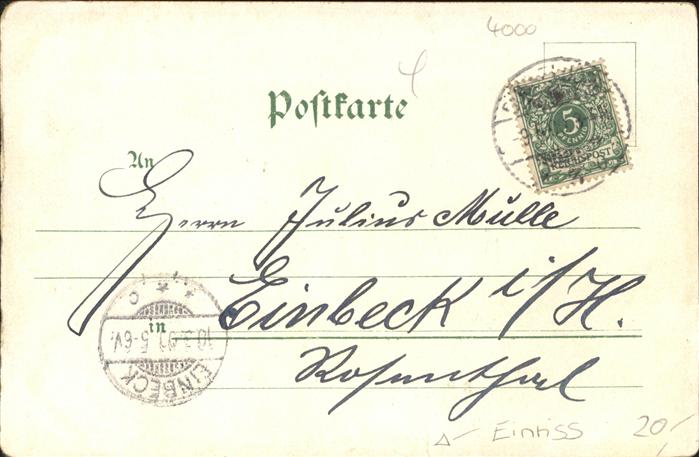 4000
Postkarte
5
PFENNIG
REICHSPOST
An
Herrn Julius Mülle
in Einbeck i/H.
Rosenthal
5-6V.
EINBECK
Einriss 20,-